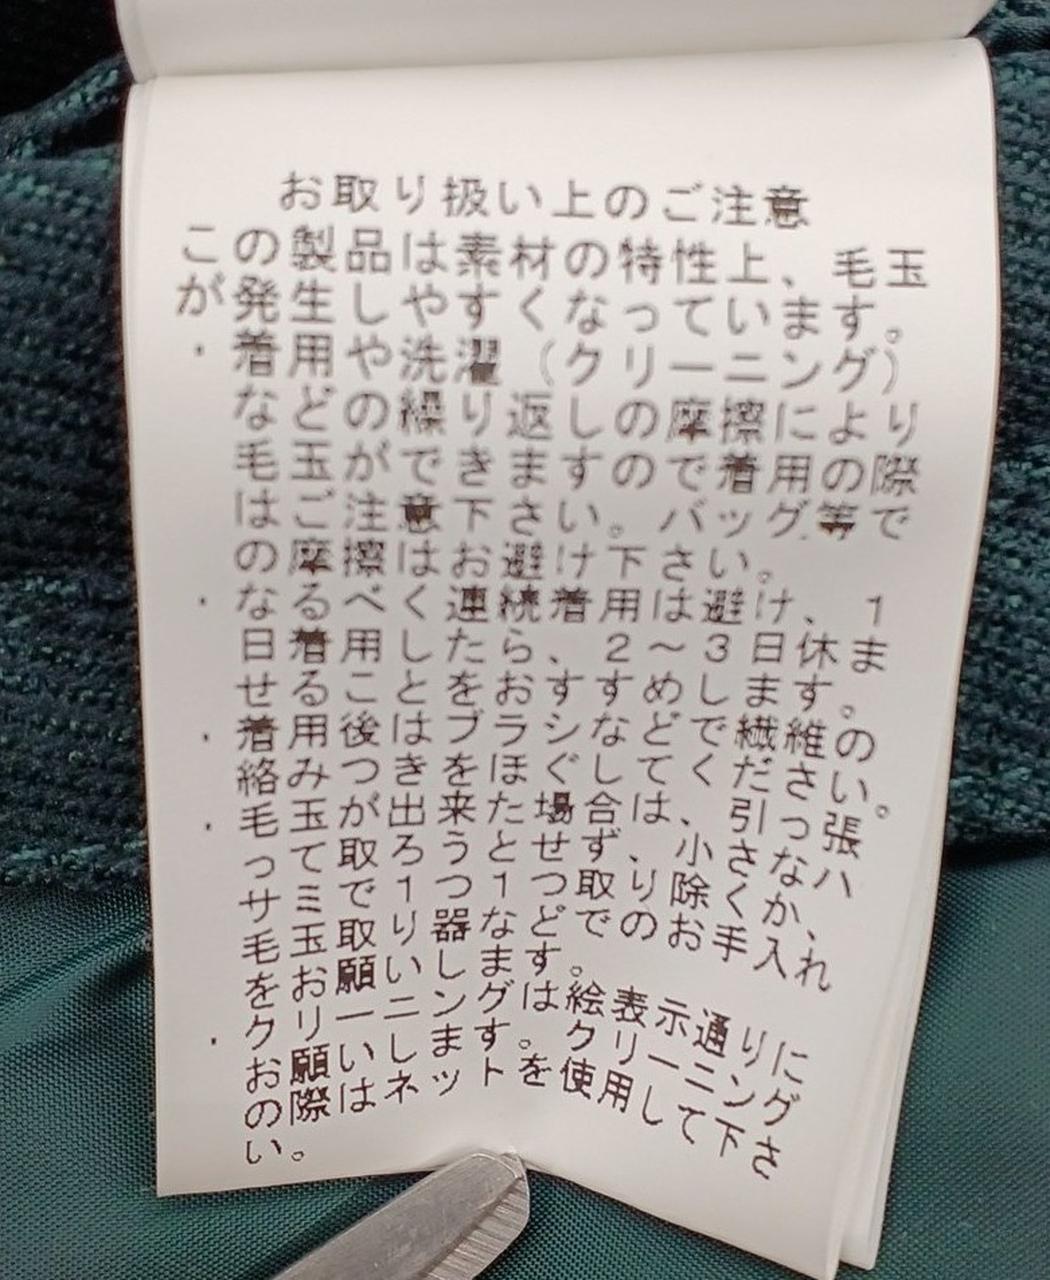 お取り扱い上のご注意
この製品は素材の特性上、毛玉
が発生しやすくなっています。
・着用や洗濯（クリーニング）
などの繰り返しの摩擦により
毛玉ができますので着用の際
はご注意下さい。バッグ等で
の摩擦はお避け下さい。
・なるべく連続着用は避け、1
日着用したら、2～3日休ま
せることをおすすめします。
・着用後はブラシなどで繊維の
絡みつきをほぐしてください。
・毛玉が出来た場合は、引っ張
って取ろうとせず、小さなハ
サミで1つ1つ取り除くか、
毛玉取り器などでのお手入れ
をお願いします。
・クリーニングは絵表示通りに
お願いします。クリーニング
の際はネットを使用して下さ
い。